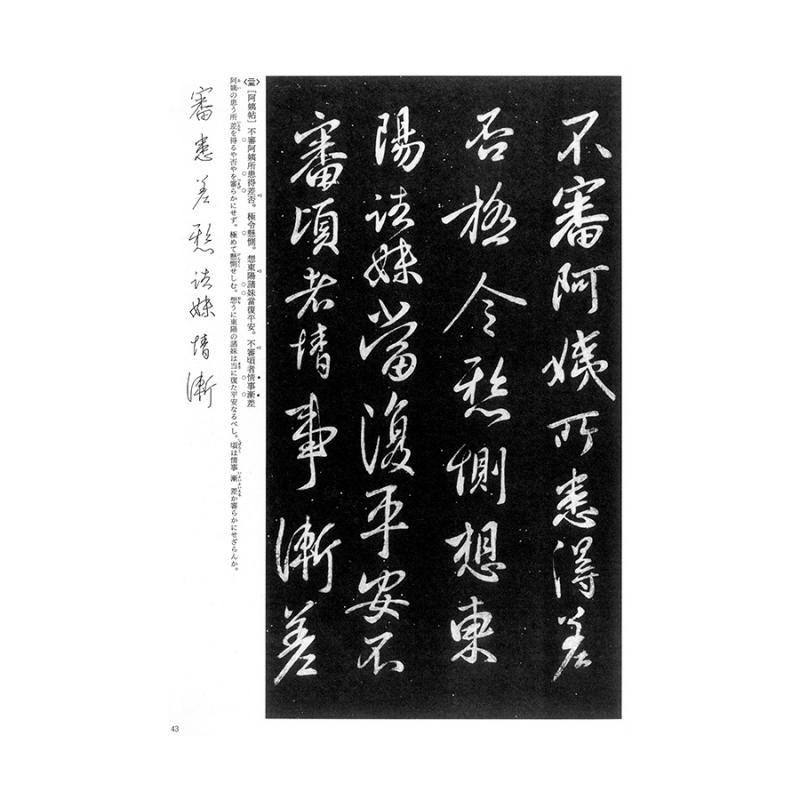 不審阿姨所患得差
否極令懸惻想東
陽諸妹當復平安不
審頃者情事漸差
[阿姨帖] 不審阿姨所患得差否。極令懸惻。想東陽諸妹當復平安。不審頃者情事漸差
阿姨の患う所、差を得るや否やを審らかにせず。極めて懸惻せしむ。想うに東陽の諸妹は当に復た平安なるべし。頃は情事 漸 差か審らかにせざらんか。
審患差懸諸妹情漸
43